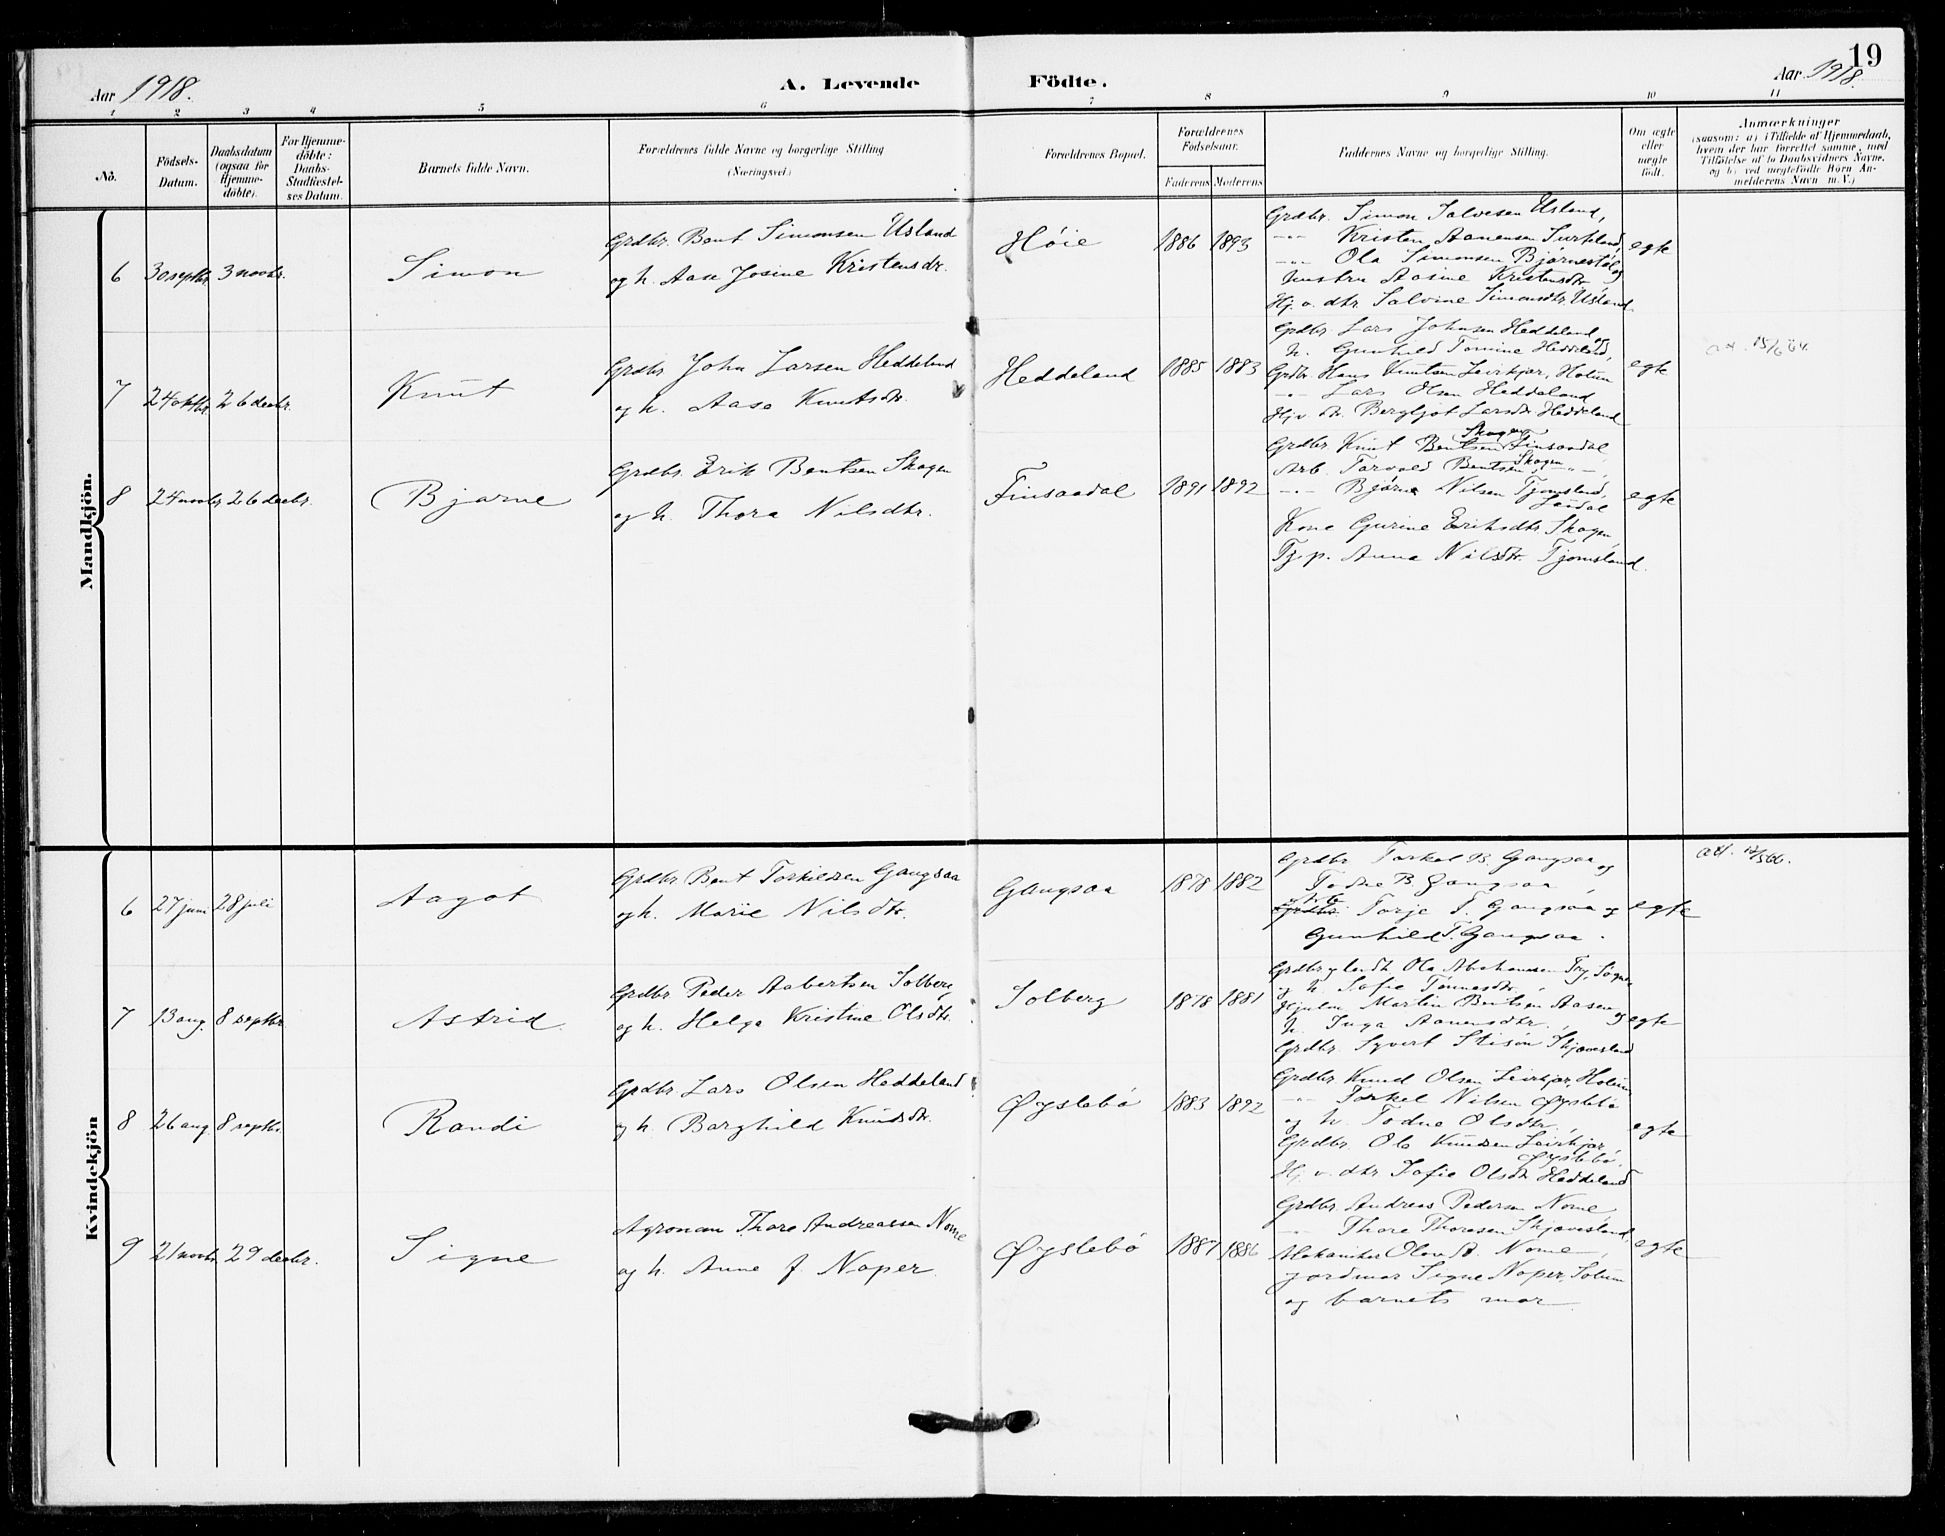 19
Aar 1918.
A. Levende Födte.
Aar 1918.
1 2 3 4 5 6 7 8 9 10 11
No.
Födsels-
Datum.
Daabsdatum
(ogsaa for
Hjemme-
döbte).
For Hjemme-
döbte:
Daabs-
Stadfæstel-
ses Datum.
Barnets fulde Navn.
Forældrenes fulde Navne og borgerlige Stilling
(Næringsvei.)
Forældrenes Bopæl.
Forældrenes
Födselsaar.
Faderens Moderens
Faddernes Navne og borgerlige Stilling.
Om ægte
eller
uægte
födt.
Anmærkninger
(saasom: a) i Tilfælde af Hjemmedaab,
hvem der har forrettet samme, med
Tilföielse af to Daabsvidners Navne,
og b) ved uægtefödte Börn An-
melderens Navn m. V.)
Mandkjön.
6 30 septbr. 3 novbr. Simon
Grdbr. Bent Simonsen Usland
og h. Aase Josine Kristensdtr.
Høie 1886 1893
Grdbr. Simon Salvesen Usland,
-"- Kristen Aanensen Surkland,
-"- Ola Simonsen Bjørnestøl og
hustru Aasine Kristensdtr.
Hj. v. dtr. Salvine Simonsdtr. Usland
egte
7 24 oktbr. 26 decbr. Knut
Grdbr. John Larsen Heddeland
og h. Aase Knutsdtr.
Heddeland 1885 1883
Grdbr. Lars Johnsen Heddeland, og
h. Gunhild Tomine Heddeland,
Grdbr. Hans Knutsen Leirkjær, Holum
-"- Lars Olsen Heddeland
Hj. v. dtr. Bergljot Larsdtr. Heddeland
egte
att. 15/6 64.
8 24 novbr. 26 decbr. Bjarne
Grdbr. Erik Bentsen Skogen
og h. Thora Nilsdtr.
Finsaadal 1891 1892
Grdbr. Knut Bentsen Skogen Finsaadal
Arb. Torvald Bentsen Skogen -"-
-"- Bjørn Nilsen Tjomsland,
Kone Gurine Eriksdtr. Skogen,
Tj. p. Anna Nilsdtr. Tjomsland.
egte
Kvindekjön
6 27 juni 28 juli Aagot
Grdbr. Bent Torkildsen Gangsaa
og h. Marie Nilsdtr.
Gangsaa 1878 1882
Grdbr. Torkel B. Gangsaa og
Todne B. Gangsaa,
Arb. Torje T. Gangsaa og
Gunhild T. Gangsaa.
egte
att. 12/5 66.
7 13 aug. 8 septbr. Astrid
Grdbr. Peder Aabertsen Solberg
og h. Helga Kristine Olsdtr.
Solberg 1878 1881
Grdbr. og landh. Ola Abrahamsen Try, Søgne
og h. Sofie Tønnesdtr.,
Hjulm. Martin Bentsen Aasen og
h. Inga Aanensdtr.,
Grdbr. Syvert Skjævesland
egte
8 26 aug. 8 septbr. Randi
Grdbr. Lars Olsen Heddeland
og h. Borghild Knudsdtr.
Øyslebø 1883 1892
Grdbr. Knud Olsen Leirkjær, Holum
-"- Torkel Nilsen Øyslebø
og h. Todne Olsdtr.,
Grdbr. Ole Knudsen Leirkjær,
Øyslebø,
Hj. v. dtr. Sofie Olsdtr. Heddeland
egte
9 21 novbr. 29 decbr. Signe
Agronom Thore Andreassen Nome
og h. Anne f. Noper.
Øyslebø 1887 1886
Grdbr. Andreas Pedersen Nome,
-"- Thore Thoresen Skjævesland,
Mekaniker Olav A. Nome,
jordmor Signe Noper,
og barnets mor.
egte